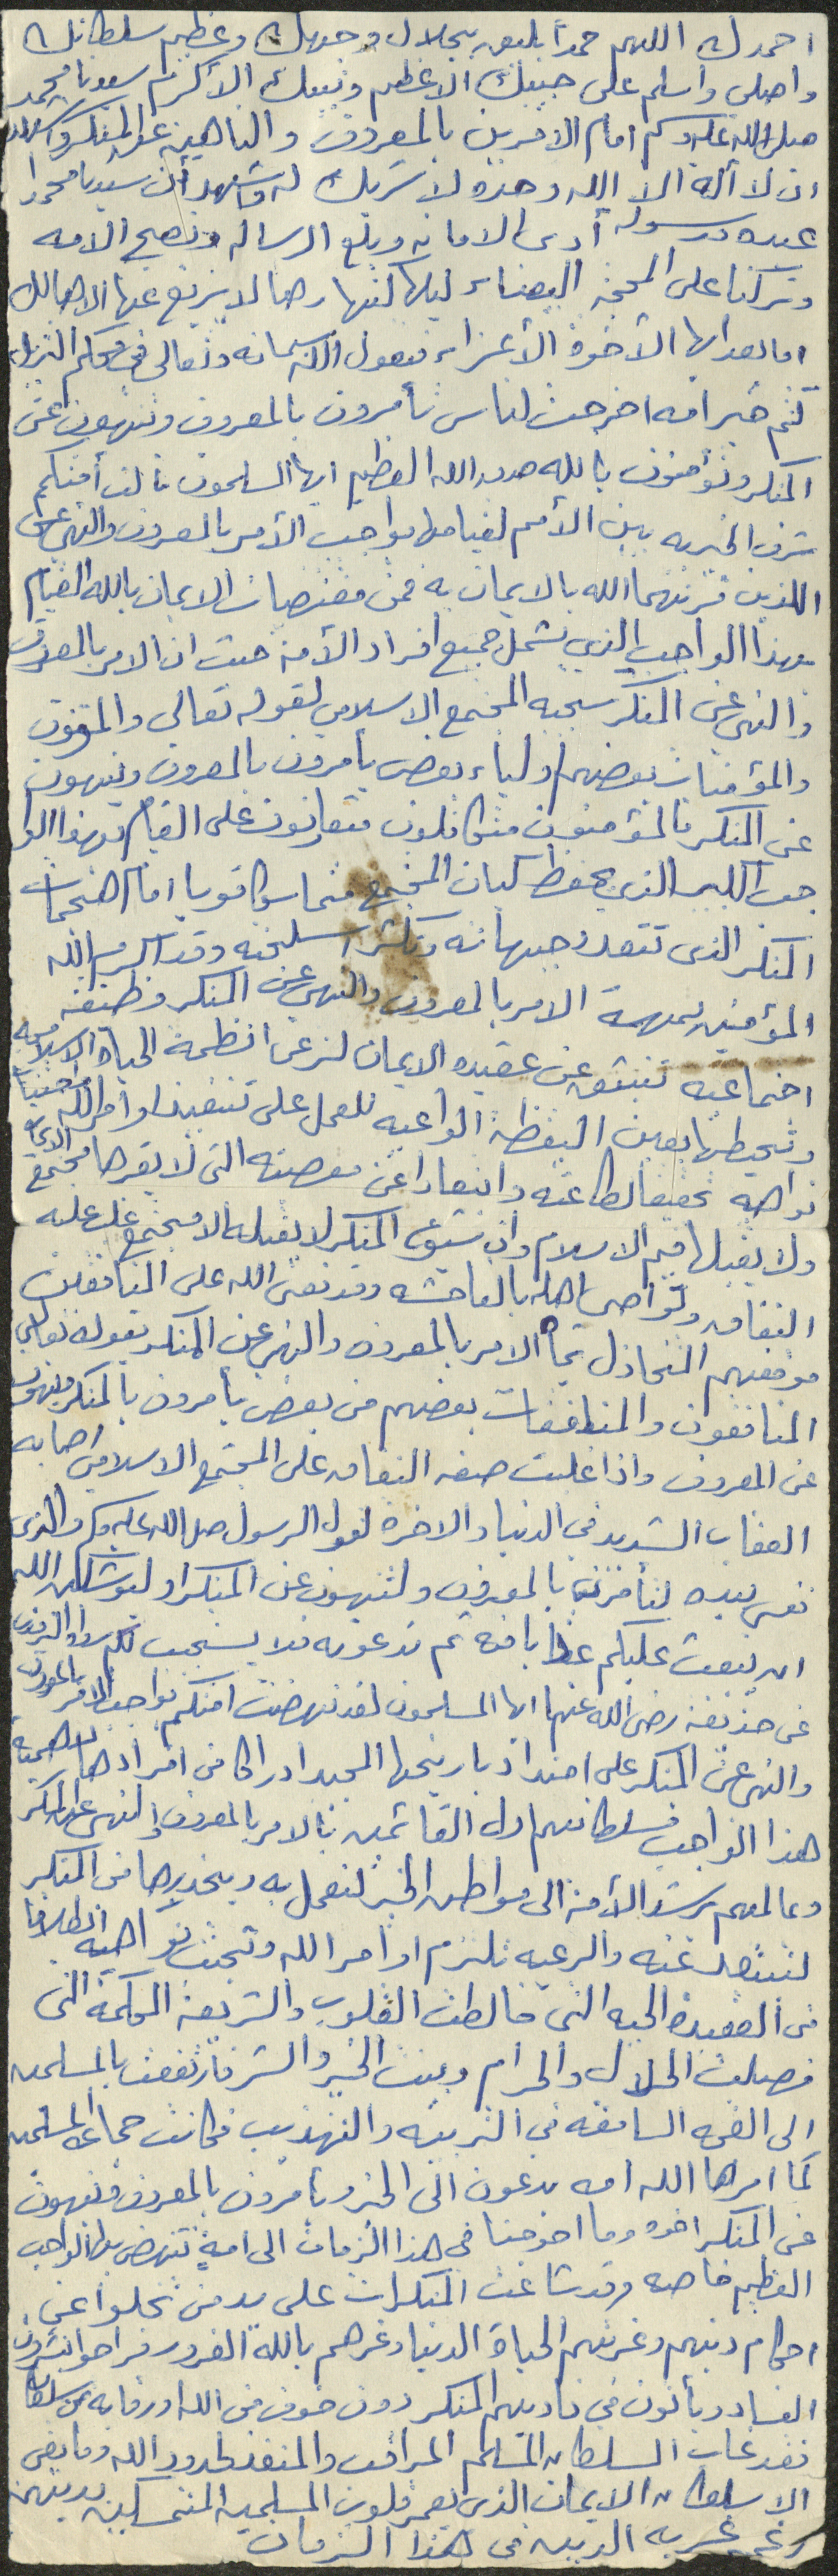 احمدك اللهم حمداً يليق بجلال وجهك وعظيم سلطانك
واصلي واسلم على حبيبك الاعظم ونبيك الاكرم سيدنا محمد
صلى الله عليه وسلم امام الآمرين بالمعروف والناهين عن المنكر واشهد
ان لا اله الا الله وحده لا شريك له واشهد أن سيدنا محمدا
عبده ورسوله أدى الامانه وبلغ الرساله ونصح الامه
وتركنا على المحجه البيضاء ليلها كنهارها لا يزيغ عنها الا هالك
اما بعد ايها الأخوة الأعزاء فيقول الله سبحانه وتعالى في محكم التنزيل
كنتم خير امه اخرجت للناس تأمرون بالمعروف وتنهون عن
المنكر وتؤمنون بالله صدق الله العظيم ايها المسلمون نالت أمتكم
شرف الخيريه بين الأمم لقيامها بواجب الأمر بالمعروف والنهي عن المنكر
اللذين قرنهما الله بالايمان به فمن مقتضيات الايمان بالله القيام
بهذا الواجب الذي يشمل جميع افراد الأمة حيث ان الامر بالمعروف
والنهي عن المنكر سجيه المجتمع الاسلامي لقوله تعالى والمؤمنون
والمؤمنات بعضهم اولياء بعض يأمرون بالمعروف وينهون
عن المنكر فالمؤمنون متكافلون متعاونون على القيام بهذا الوا
جب الكبير الذي يحفظ كيان المجتمع متماسكا قويا امام هجمات
المنكر الذي تتعدد جبهاته وتكثر اسلحته وقد اكرم الله
المؤمنين بمهمة الامر بالمعروف والنهي عن المنكر وظيفه
اجتماعيه تنبثق عن عقيده الايمان لترعى انظمة الحياة الاسلاميه
وتحيطها بعين اليقظه الواعيه للعمل على تنفيذ اوامر الله واجتناب
نواهيه تحقيقا لطاعته وابتعادا عن معصيته التي لا يقرها مجتمع الايمان
ولا يقبلها قيم الاسلام وان شيوع المنكر لا يقبله الا مجتمع غلب عليه
النفاق وتواصى اهله بالفاحشه وقد نعى الله على المنافقين
موقفهم المتخاذل تجاه الامر بالمعروف والنهي عن المنكر بقوله تعالى
المنافقون والمنافقات بعضهم من بعض يأمرون بالمنكر وينهون
عن المعروف واذا غلبت صفه النفاق على المجتمع الاسلامي اصابه
العقاب الشديد في الدنيا والاخره لقول الرسول صلى الله عليه وسلم والذي
نفسي بيده لتأمرن بالمعروف ولتنهون عن المنكر او ليوشكن الله
ان يبعث عليكم عذابا منه ثم تدعونه فلا يستجيب لكم رواه الترمذي
عن حذيفه رضي الله عنهما ايها المسلمون لقد نهضت امتكم بواجب الامر بالمعروف
والنهي عن المنكر على امتداد تاريخها المجيد ادراكا من افرادها لاهمية
هذا الواجب فسلطانهم اول القائمين بالامر بالمعروف والنهي عن المنكر
وعالمهم يرشد الأمة الى مواطن الخير لتعمل به ويحذيرها من المنكر
لتبتعد عنه والرعيه تلتزم اوامر الله وتجتنب نواهيه انطلاقا
من العقيدة الحيه التي خالطت القلوب والشريعة المحكمة التي
فصلت الحلال والحرام وبينت الخير والشر فارتفعت بالمسلمين
الى القمه السامقه في التربيه والتهذيب فكانت جماعة المسلمين
كما امرها الله امه يدعون الى الخير ويأمرون بالمعروف وينهون
عن المنكر اخوه وما احوجنا في هذا الزمان الى امة تنهض بهذا الواجب
العظيم خاصه وقد شاعت المنكرات على يد من تخلوا عن
احكام دينهم وغرتهم الحياة الدنيا وغرهم بالله الغرور فراحوا ينشرون
الفساد ويأتون في ناديهم المنكر دون خوف من الله او رقابه من سلطان
فقد غاب السلطان المسلم المراقب والمنفذ لحدود الله وما بقي
الا سلطان الايمان الذي يعمر قلوب المسلمين المتمسكين بدينهم
رغم غربه الدين في هذا الزمان